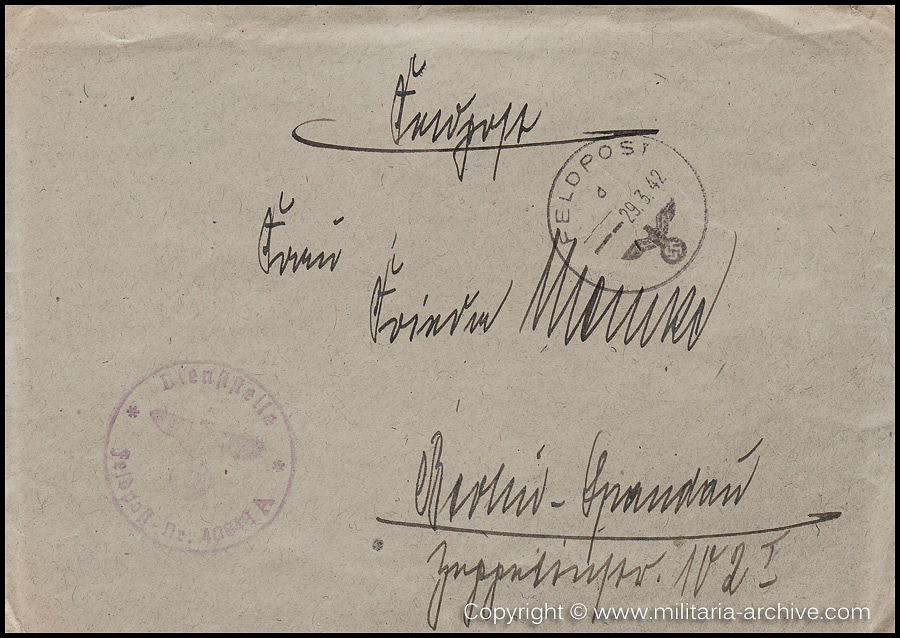 Feldpost
FELDPOST
d
29.3.42
Frau
Frieda
Dienststelle
Feldpost Nr. A
Berlin-Spandau
Zeppelinstr. 102 I
Copyright © www.militaria-archive.com